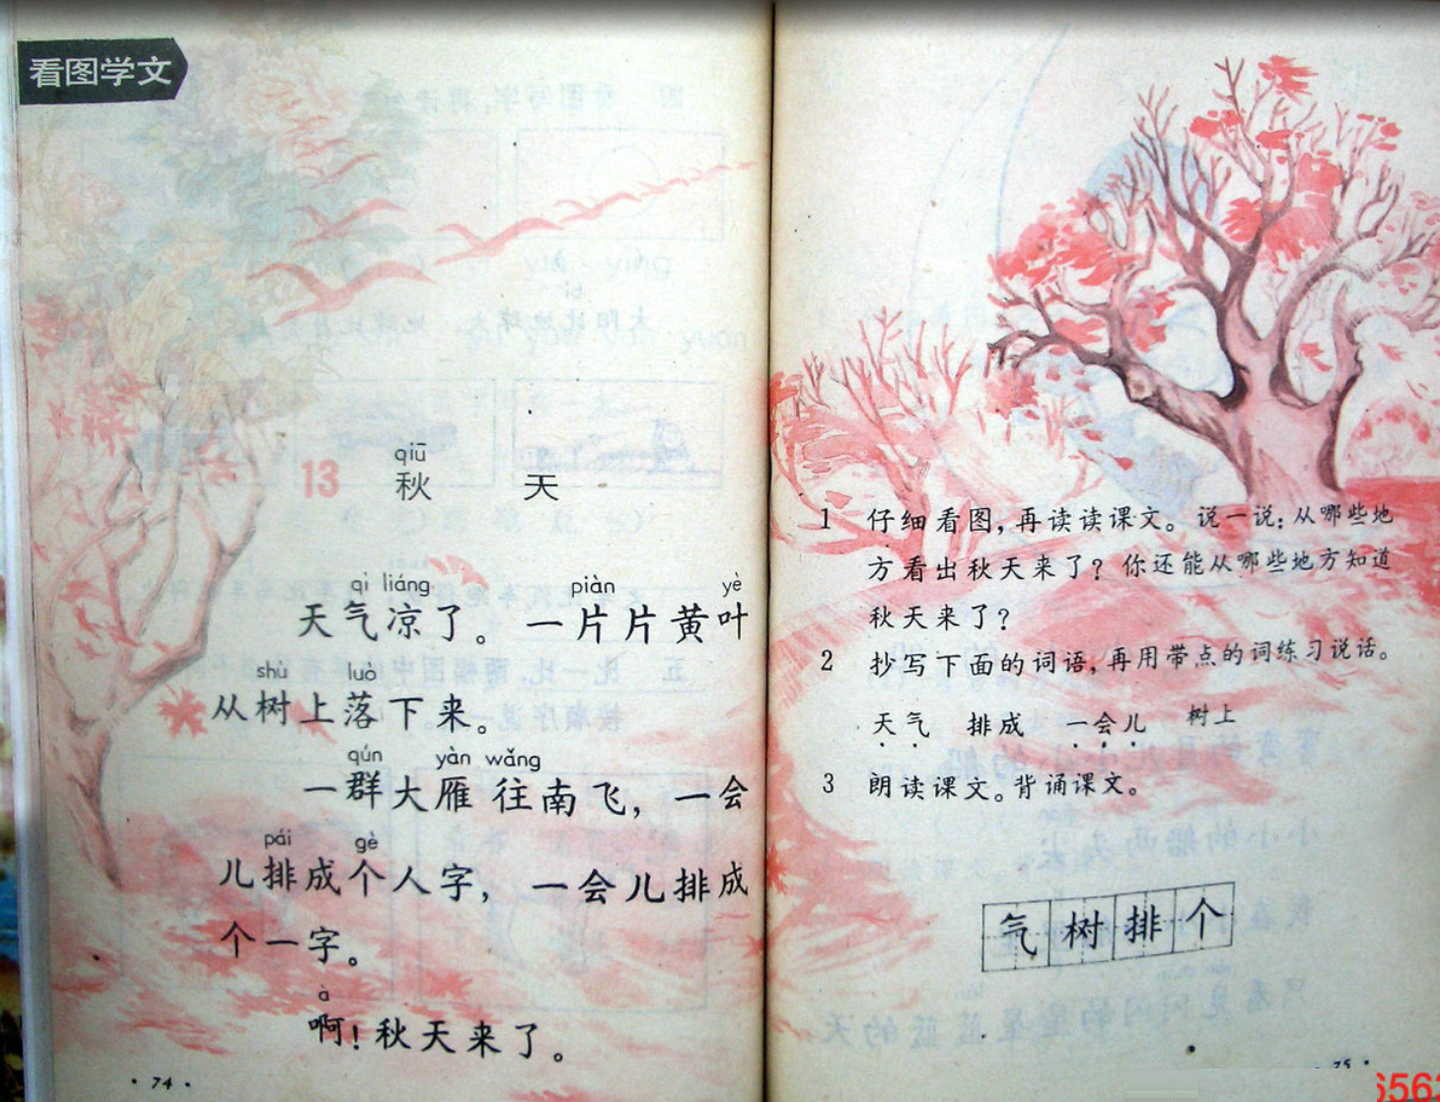 看图学文
13
qiū
秋 天
qì liáng piàn yè
天气凉了。一片片黄叶
shù luò
从树上落下来。
qún yàn wǎng
一群大雁往南飞，一会
pái gè
儿排成个人字，一会儿排成
个一字。
à
啊！秋天来了。
·74·
1 仔细看图，再读读课文。说一说：从哪些地
方看出秋天来了？你还能从哪些地方知道
秋天来了？
2 抄写下面的词语，再用带点的词练习说话。
天气 排成 一会儿 树上
3 朗读课文。背诵课文。
气树排个